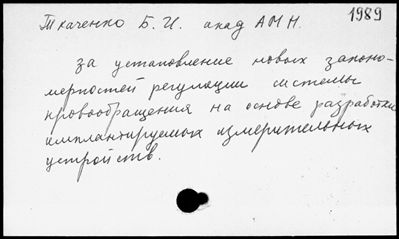 Ткаченко Б. И. акад АМН. 1989
за установление новых законо-
мерностей регуляции системы
кровообращения на основе разработки
имплантируемых измерительных
устройств.